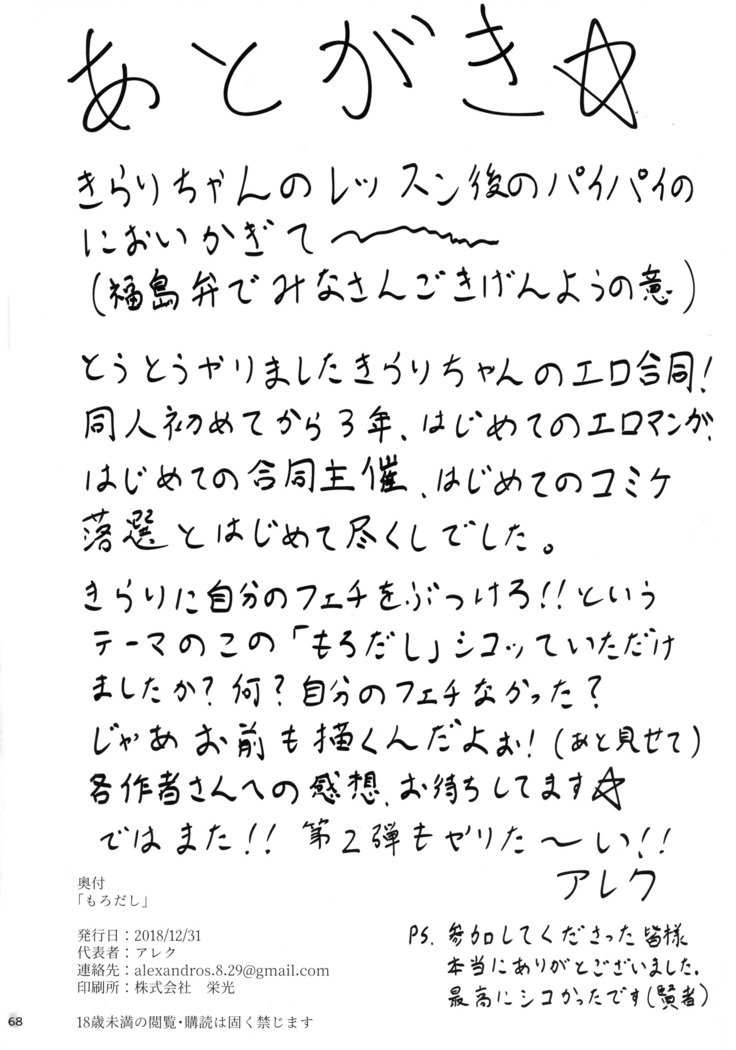 あとがき☆
きらりちゃんのレッスン後のパイパイの
においかぎて〜〜〜
(福島弁でみなさんごきげんようの意)
とうとうやりましたきらりちゃんのエロ合同!
同人初めてから3年、はじめてのエロマンガ、
はじめての合同主催、はじめてのコミケ
落選とはじめて尽くしでした。
きらりに自分のフェチをぶつけろ!!という
テーマのこの「もろだし」シコッていただけ
ましたか?何?自分のフェチなかった?
じゃあお前も描くんだよぉ!(あと見せて)
各作者さんへの感想、お待ちしてます☆
ではまた!!第2弾もやりた〜い!!
アレク
奥付
「もろだし」
発行日:2018/12/31
代表者:アレク
連絡先:alexandros.8.29@gmail.com
印刷所:株式会社 栄光
18歳未満の閲覧・購読は固く禁じます
PS. 参加してくださった皆様
本当にありがとございました.
最高にシコかったです(賢者)
68